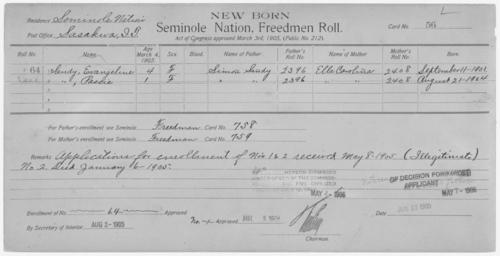 NEW BORN
Residence: Seminole Nation
Seminole Nation, Freedmen Roll.
Card No. 56
Post Office: Sasakwa, I.T.
Act of Congress approved March 3rd, 1905, (Public No. 212).
Roll No. Name. Age March 4, 1905. Sex. Blood. Name of Father. Father's Roll No. Name of Mother. Mother's Roll No. Born.
64 Sandy, Evangeline 4 F Simon Sandy 2396 Ella Carolina 2408 September-11-1901.
" , Rosie 1 F " " 2396 " " 2408 August-21-1904
For Father's enrollment see Seminole Freedman Card No. 758
For Mother's enrollment see Seminole Freedman Card No. 759
Remarks: Applications for enrollment of Nos 1 & 2 received May 8-1905 (Illegitimate)
No 2 Died January 6-1905.
HEREON FORWARDED
MAY 1906
OF DECISION FORWARDED
APPLICANT
MAY 7- 1906
Enrollment of No. 64 Approved
By Secretary of Interior AUG 2-1905
No. 1 Approved
Chairman